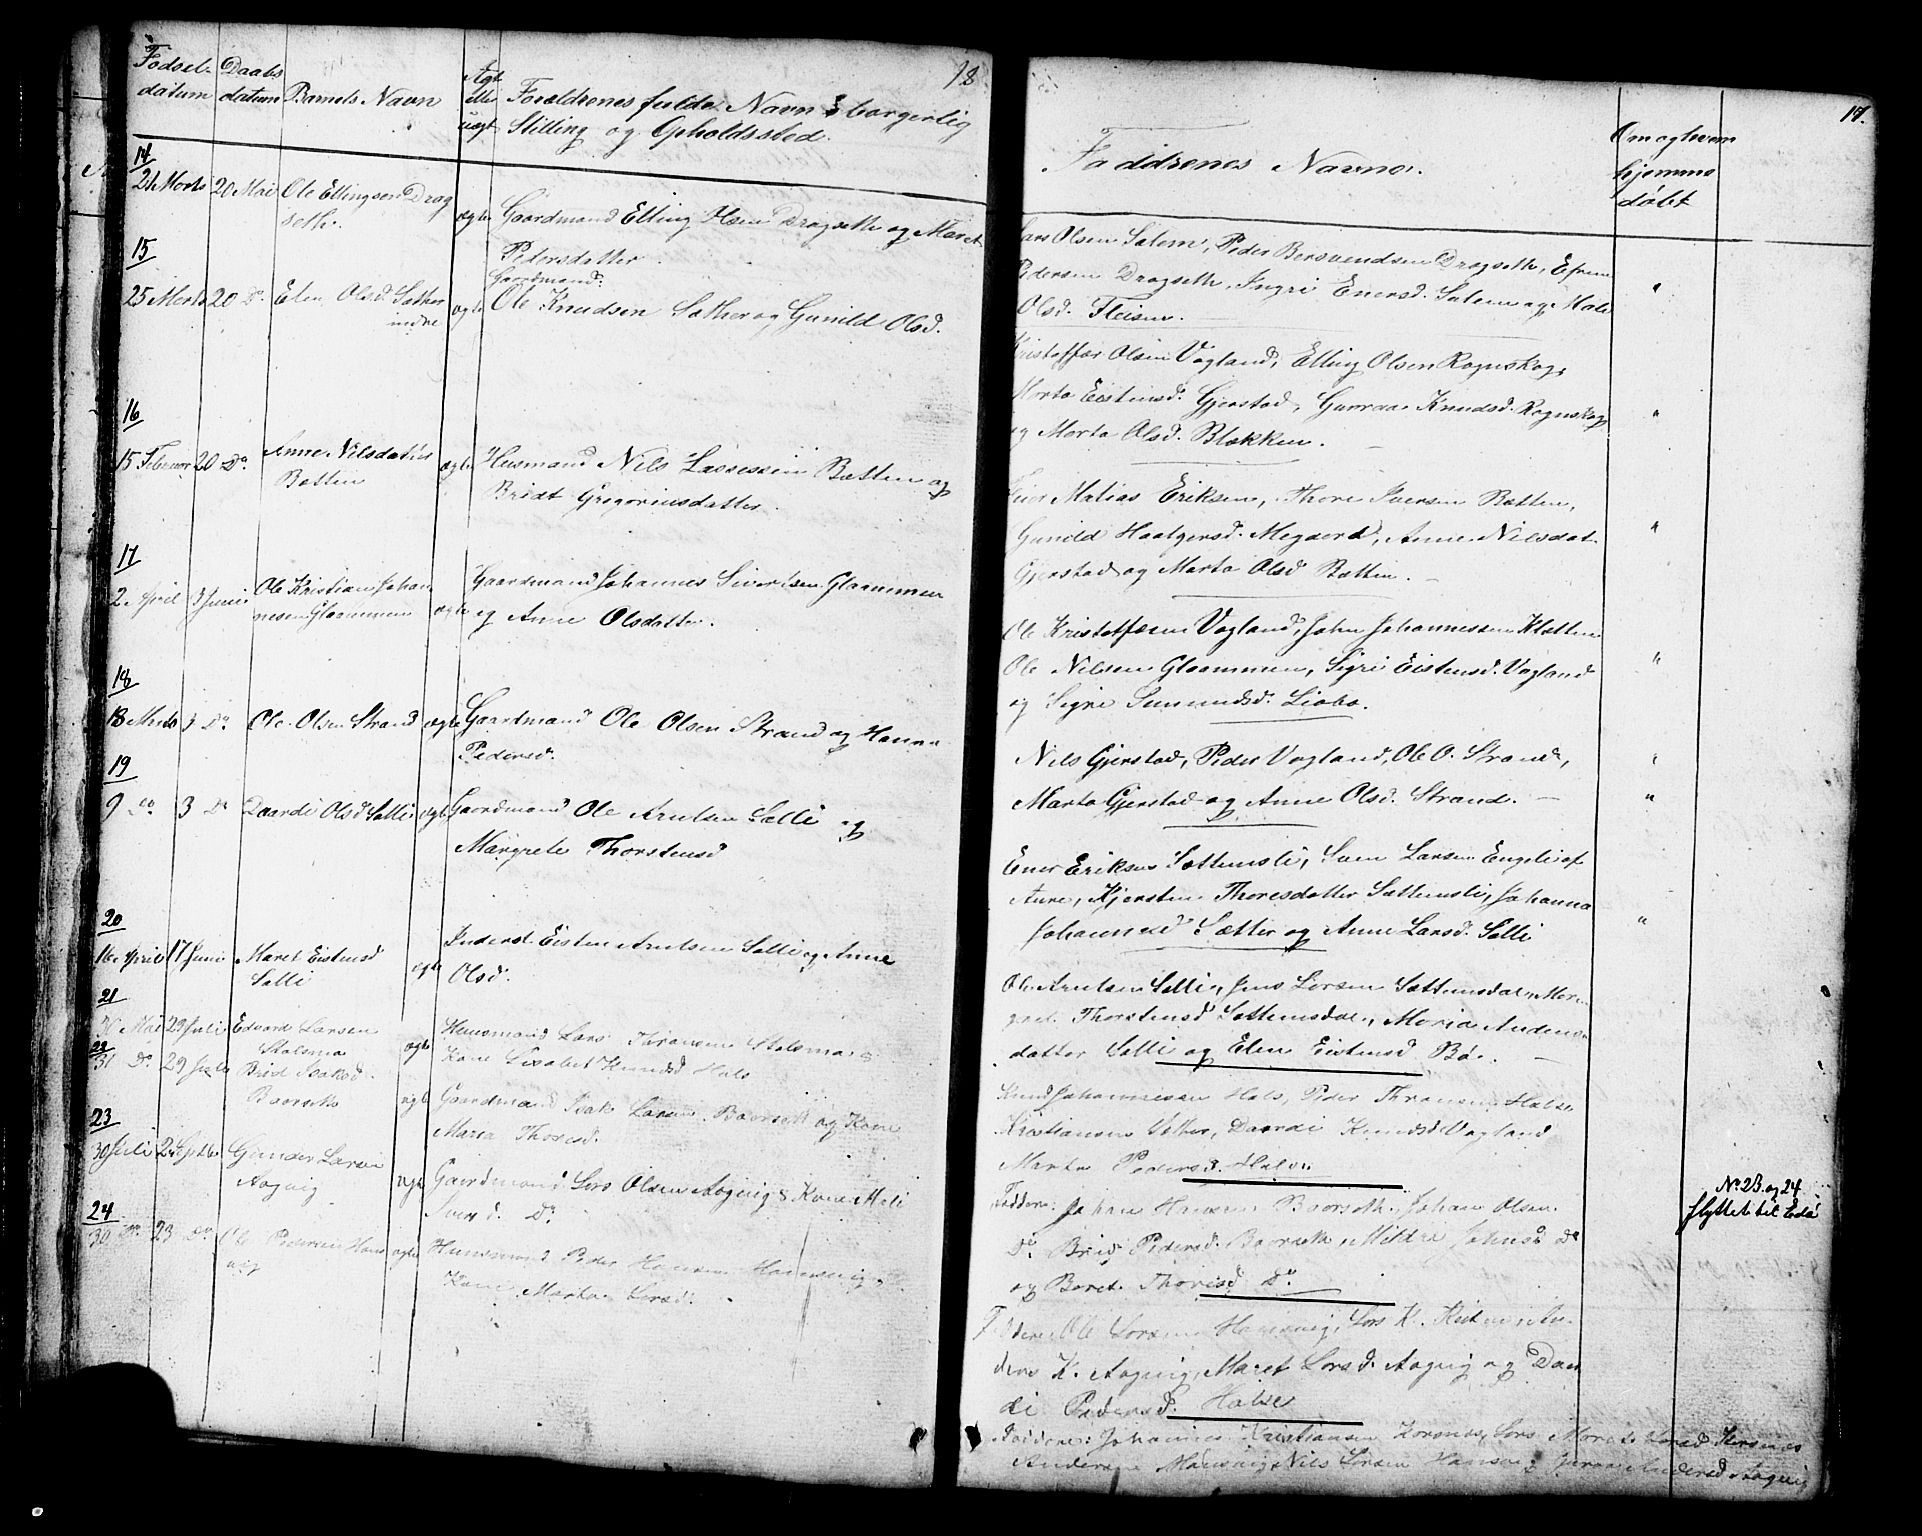 18
Fødsel- Daabs Barnets Navn Ægt Forældrenes fulde Navn & borgerlig
datum datum eller Stilling og Opholdssted.
uægt
14
21 Marts 20 Mai Ole Ellingsen Drag
seth. ægte Gaardmand Elling Olsen Dragseth og Maret
Pedersdatter
15
Gaardmand
25 Marts 20 Do. Elen Olsd. Sæther
indre ægte Ole Knudsen Sæther og Gunild Olsd.
16
15 Februar 20 Do. Anne Nilsdatter
Botten ægte Husmand Nils Lassessen Botten og
Bridt Gregoriusdatter.
17
2 April 3 Juni Ole Kristian Johan
nesen Glaammen ægte Gaardmand Johannes Sivertsen Glaammen
og Anne Olsdatter.
18
18 Marts 3 Do. Ole Olsen Strand ægte Gaardmand Ole Olsen Strand og Hanna
Pedersd.
19
9 do 3 Do Daardi Olsd Sølli ægte Gaardmand Ole Arntsen Sølli og
Margrete Thorstensd
20
16 April 17 Juni Maret Eistensd
Sølli ægte Inderst Eisten Arntsen Sølli og Anne
Olsd.
21
Mai 29 Juli Edvard Larsen
Stolsmo ægte Huusmand Lars Thronsen Stolsmo &
Kone Lisabet Knudsd Hals
22
31 Do. 29 Juli Brid Isaksd.
Baarseth ægte Gaardmand Isak Larsen Baarseth og Kone
Maria Thoresd.
23
30 Juli 2 Septbr Gunder Larsen
Aagvig ægte Gaardmand Lars Olsen Aagvig & Kone Mali
Iversd. Do
24
30 Do. 23 Do. Ole Pedersen Hans
vig ægte Huusmand Peder Hansen Hansvig &
Kone Marta Larsd.
17.
Faddrenes Navne. Om og hvem
hjemme
døbt
Lars Olsen Salem, Peder Bersvendsen Dragseth, Efrem
Pedersen Dragseth, Ingri Enersd. Salem og Mali
Olsd. Fleisen.
Kristoffer Olsen Vagland, Elling Olsen Rognskog,
Marta Eistensd. Gjerstad, Guroe Knudsd. Rognskog
og Marta Olsd. Blekken.
Matias Eriksen, Thore Iversen Botten,
Gunild Haatgersd. Megaard, Anne Nilsdat.
Gjerstad og Marta Olsd Botten.
Ole Kristoffersen Vagland, John Johannessen Kletten
Ole Nilsen Glaammen, Sigri Eistensd. Vagland
og Sigre Liabø.
Nils Gjerstad, Peder Vagland, Ole O. Strand,
Marta Gjerstad og Anne Olsd. Strand.
Ener Eriksen Sættemsli, Sven Larsen Engeli af
Aure, Kjersten Thoresdatter Sættemsli, Johanna
Johannesd Sætter og Anne Larsd. Sølli
Ole Arntsen Sølli, Jens Larsen Sættemsdal, Mar
gret Thorstensd Sættemsdal, Maria Anders
datter Sølli og Elen Eistensd Bø.
Knud Johannessen Hals, Peder Thronsen Halse,
Kristiansen Sæther, Daardi Knudsd Vagland
Marta Pedersd. Halse
Faddere: Johan Hansen Baarseth, Johan Olsen
Do. Brid Pedersd. Baarseth, Mildre Johnsd Do
og Beret Thoresd Do
Faddere: Ole Larsen Hansvig, Lars K. An
ders K. Aagvig, Maret Larsd. Aagvig og Daar
di Pedersd. Halse
No. 23 og 24
flyttet til
Faddere: Johannes Kristiansen Korsnes, Lars
Andersen Hansvig, Nils Larsen Guroe Andersd Aagvig